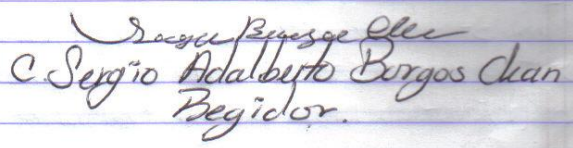 C. Sergio Adalberto Burgos Chan
Regidor.